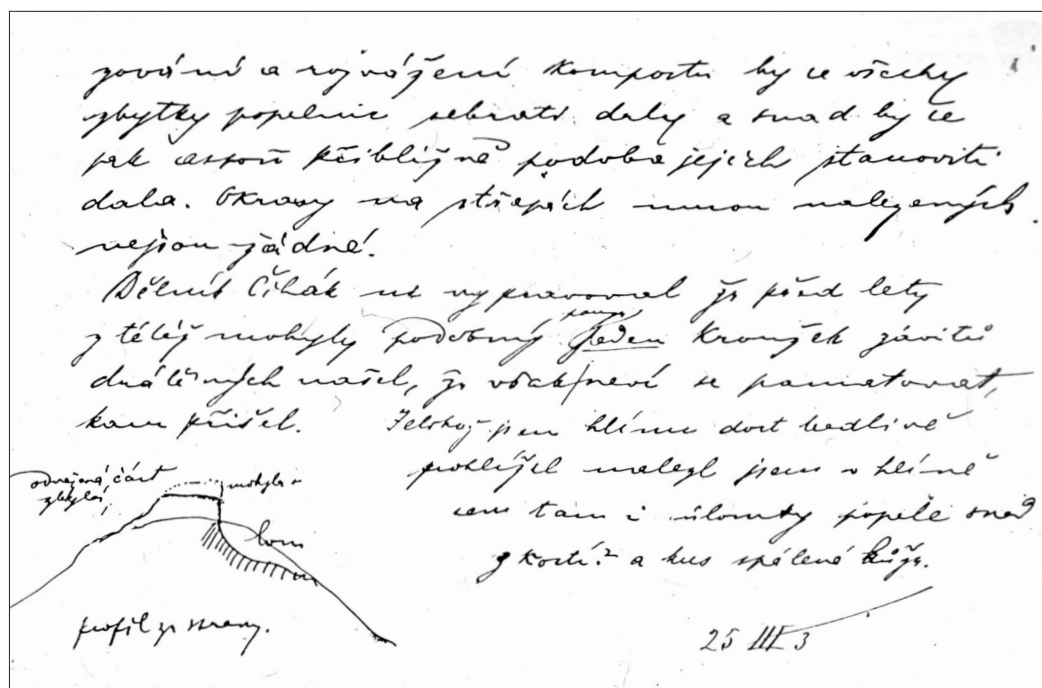 zování a rozvážení kompostu by se všechny
zbytky popelnic sebrati daly a snad by se
pak aspoň přibližně podoba jejich stanoviti
dala. Okrasy na střepách mnou nalezených
nejsou žádné.
Dělník Čihák mi vypravoval že před lety
z téže mohyly podobný jeden kroužek závitů
drátěných našel, že však neví se pamatovat,
kam přišel. Jelikož jsem hlínu dost bedlivě
prohlížel nalezl jsem v hlíně
sem tam i úlomky popele snad
z kostí? a kus spálené kůže.
odvežená část
zbylá
mohyla
lom
profil ze strany.
25 III 3